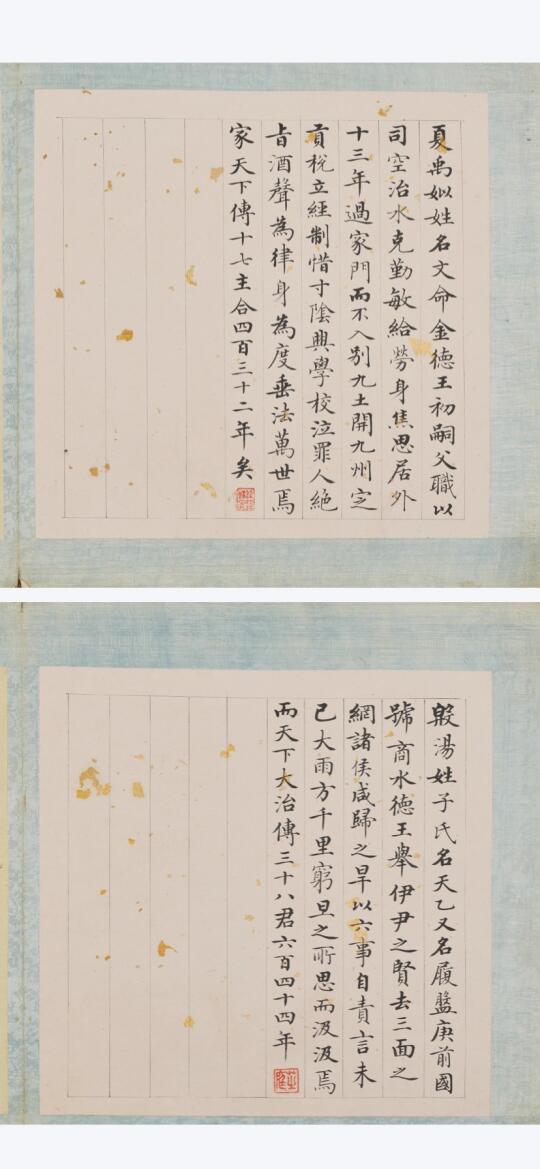 夏禹姒姓名文命金德王初嗣父職以
司空治水克勤敏給勞身焦思居外
十三年過家門而不入別九土開九州定
貢稅立經制惜寸陰興學校泣罪人絕
旨酒聲為律身為度垂法萬世焉
家天下傳十七主合四百三十二年矣
殷湯姓子氏名天乙又名履盤庚前國
號商水德王舉伊尹之賢去三面之
網諸侯咸歸之旱以六事自責言未
已大雨方千里窮旦之所思而汲汲焉
而天下大治傳三十八君六百四十四年